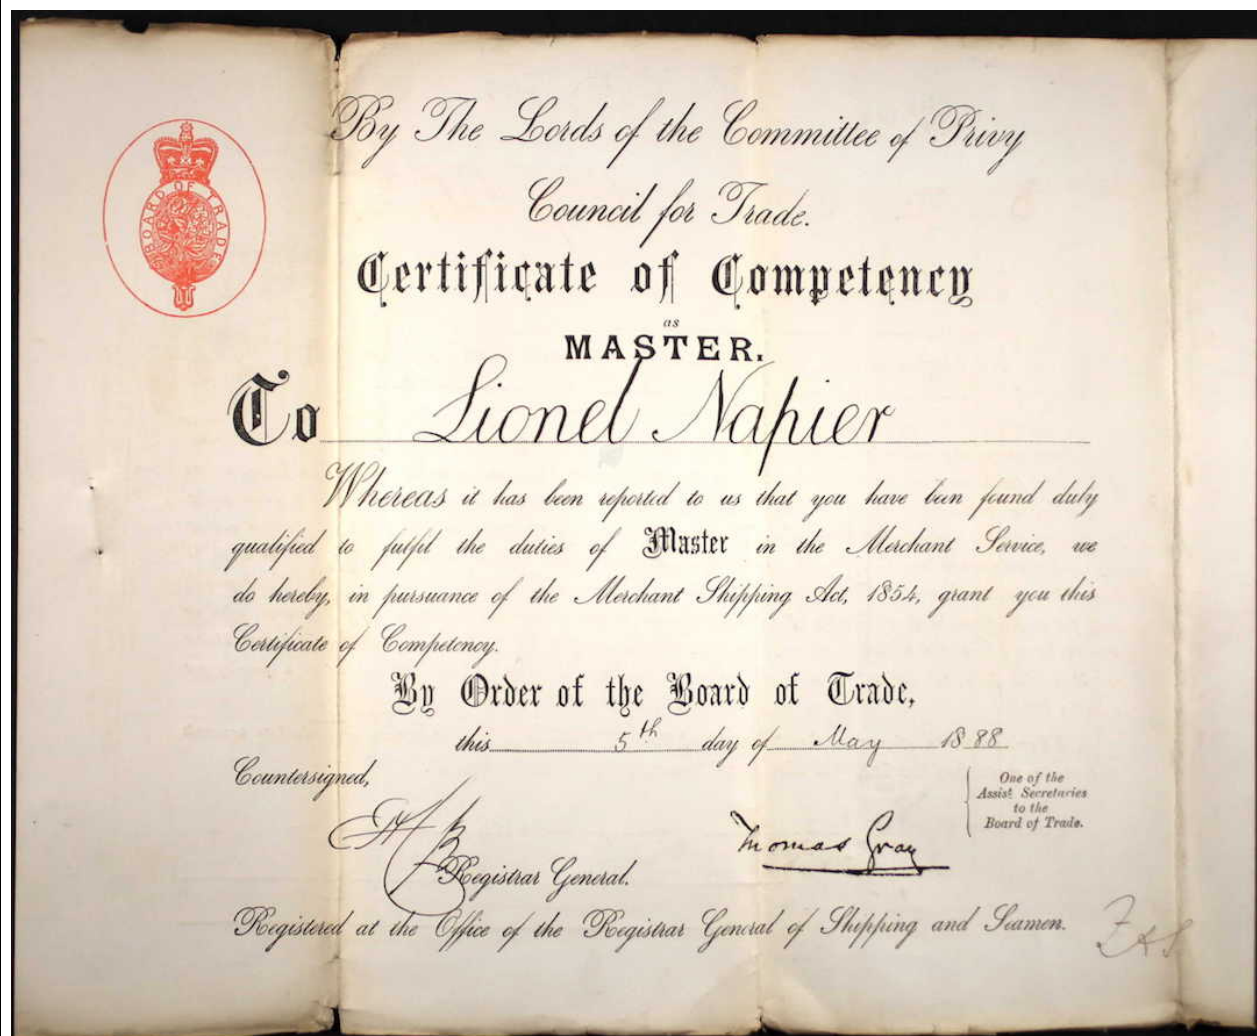 BOARD OF TRADE
By The Lords of the Committee of Privy
Council for Trade.
Certificate of Competency
as
MASTER.
To Lionel Napier
Whereas it has been reported to us that you have been found duly
qualified to fulfil the duties of Master in the Merchant Service, we
do hereby, in pursuance of the Merchant Shipping Act, 1854, grant you this
Certificate of Competency.
By Order of the Board of Trade,
this 5th day of May 1888
Countersigned,
One of the
Assist Secretaries
to the
Board of Trade.
Thomas Gray
Registrar General.
Registered at the Office of the Registrar General of Shipping and Seamen.